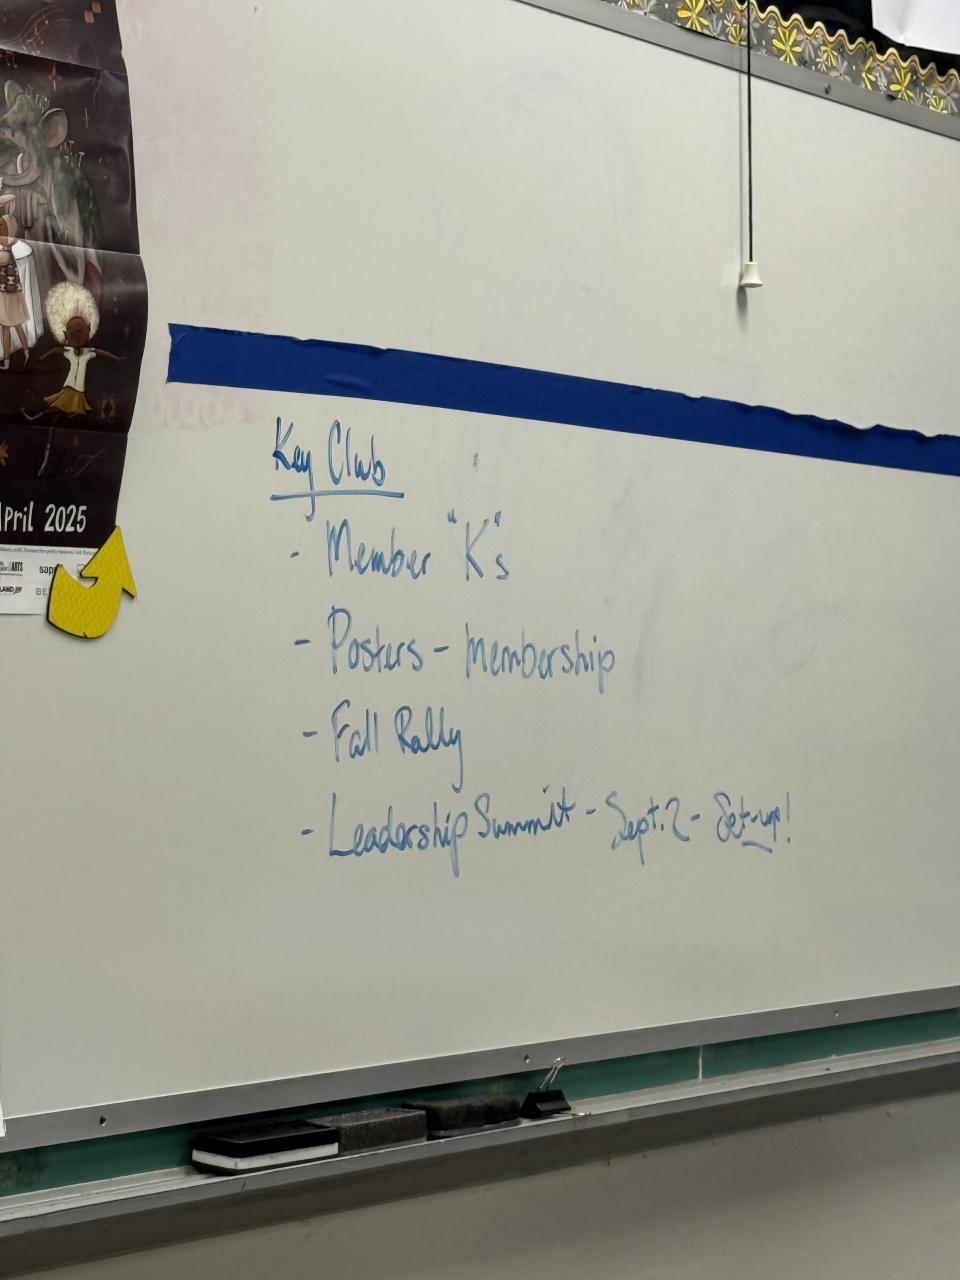 April 2025
Key Club
- Member "K"s
- Posters - Membership
- Fall Rally
- Leadership Summit - Sept. 2 - Set-up!